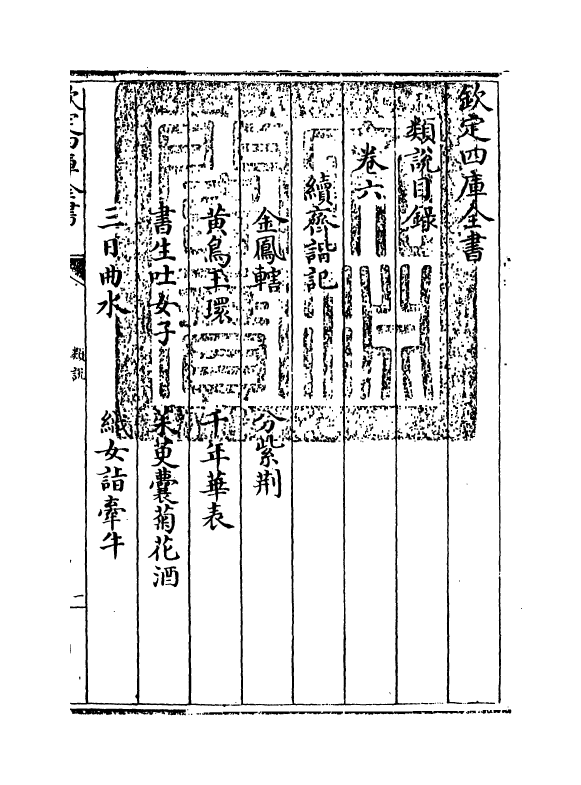 欽定四庫全書
類說目錄
卷六
續齊諧記
金鳳轄 分紫荆
黃鳥玉環 千年華表
書生吐女子 茱萸囊菊花酒
三日曲水 織女詣牽牛
欽定四庫全書
類說
二